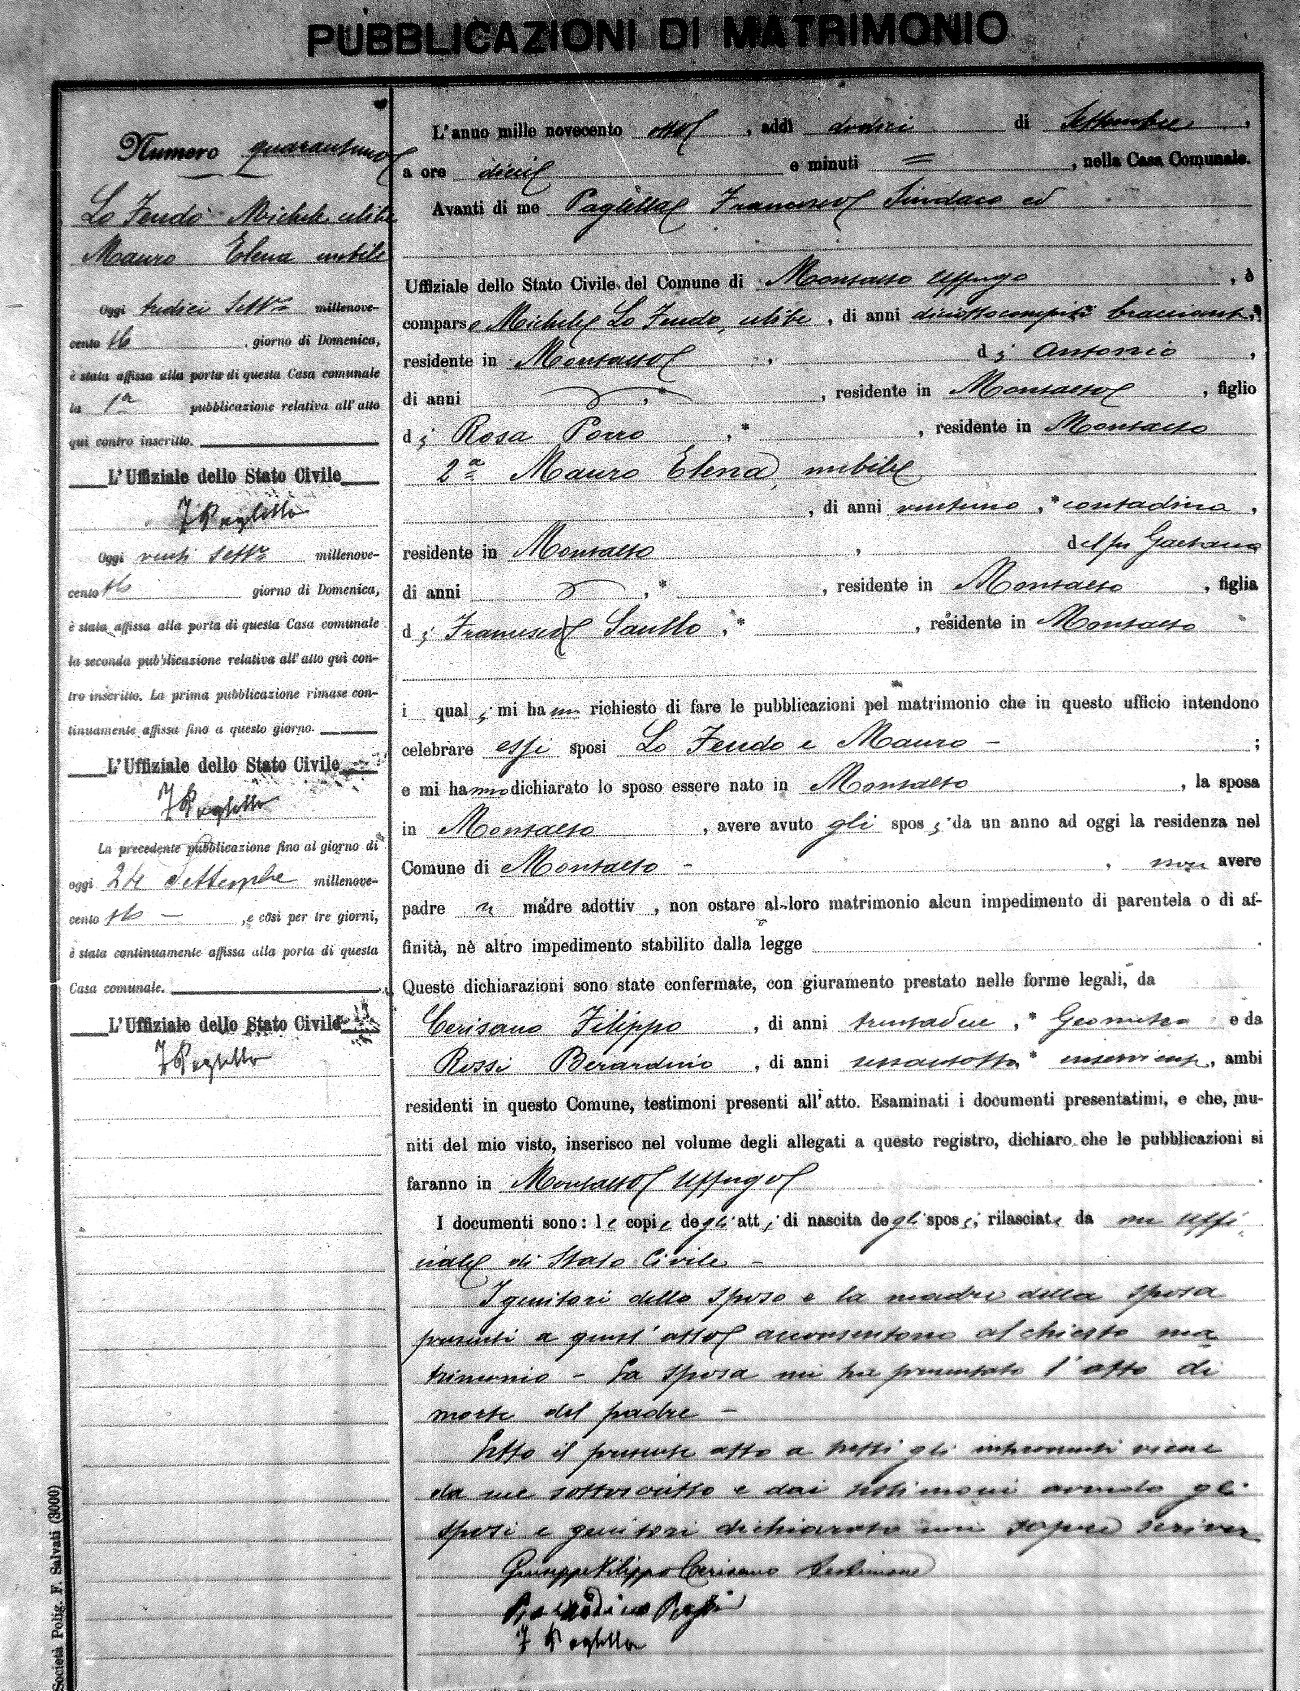 PUBBLICAZIONI DI MATRIMONIO
Numero quarantuno
Lo Feudo Michele celibe
Mauro Elena nubile
Oggi tredici Sett.re millenove-
cento , giorno di Domenica,
è stata affissa alla porta di questa Casa comunale
la 1a pubblicazione relativa all'atto
qui contro inscritto.
L'Uffiziale dello Stato Civile
F Paglilla
Oggi venti Sett.re millenove-
cento giorno di Domenica,
è stata affissa alla porta di questa Casa comunale
la seconda pubblicazione relativa all'atto qui con-
tro inscritto. La prima pubblicazione rimase con-
tinuamente affissa fino a questo giorno.
L'Uffiziale dello Stato Civile
F Paglilla
La precedente pubblicazione fino al giorno di
oggi 24 Settembre millenove-
cento , e così per tre giorni,
è stata continuamente affissa alla porta di questa
Casa comunale.
L'Uffiziale dello Stato Civile
F Paglilla
L'anno mille novecento otto , addì dodici di Settembre ,
a ore dieci e minuti = , nella Casa Comunale.
Avanti di me Paglilla Francesco Sindaco ed
Uffiziale dello Stato Civile del Comune di Montalto Uffugo , è
compars e Michele Lo Feudo, celibe , di anni diciotto compiti bracciante,
residente in Montalto , di Antonio ,
di anni , * , residente in Montalto , figlio
di Rosa Porro , * , residente in Montalto
2a Mauro Elena, nubile
, di anni ventuno , * contadina ,
residente in Montalto , del fu Gaetano
di anni , * , residente in Montalto , figlia
di Francesca Saullo , * , residente in Montalto
i quali mi hanno richiesto di fare le pubblicazioni pel matrimonio che in questo ufficio intendono
celebrare essi sposi Lo Feudo e Mauro - ;
e mi hanno dichiarato lo sposo essere nato in Montalto , la sposa
in Montalto , avere avuto gli sposi da un anno ad oggi la residenza nel
Comune di Montalto - , non avere
padre o madre adottiv , non ostare al loro matrimonio alcun impedimento di parentela o di af-
finità, nè altro impedimento stabilito dalla legge .
Queste dichiarazioni sono state confermate, con giuramento prestato nelle forme legali, da
Cerisano Filippo , di anni trentadue , * Geometra e da
Rossi Berardino , di anni sessantotto * inserviente, ambi
residenti in questo Comune, testimoni presenti all'atto. Esaminati i documenti presentatimi, e che, mu-
niti del mio visto, inserisco nel volume degli allegati a questo registro, dichiaro che le pubblicazioni si
faranno in Montalto Uffugo .
I documenti sono: le copie degli atti di nascita degli sposi, rilasciate da me Uffi
ciale di Stato Civile -
I genitori dello sposo e la madre della sposa
presenti a quest'atto acconsentono al chiesto ma
trimonio - La sposa mi ha presentato l'atto di
morte del padre -
Letto il presente atto a tutti gli intervenuti viene
da me sottoscritto e dai testimoni avendo gli
sposi e genitori dichiarato non sapere scrivere
Giuseppe Filippo Cerisano testimone
Berardino Rossi
F Paglilla
Società Polig. F. Salvati (3000)